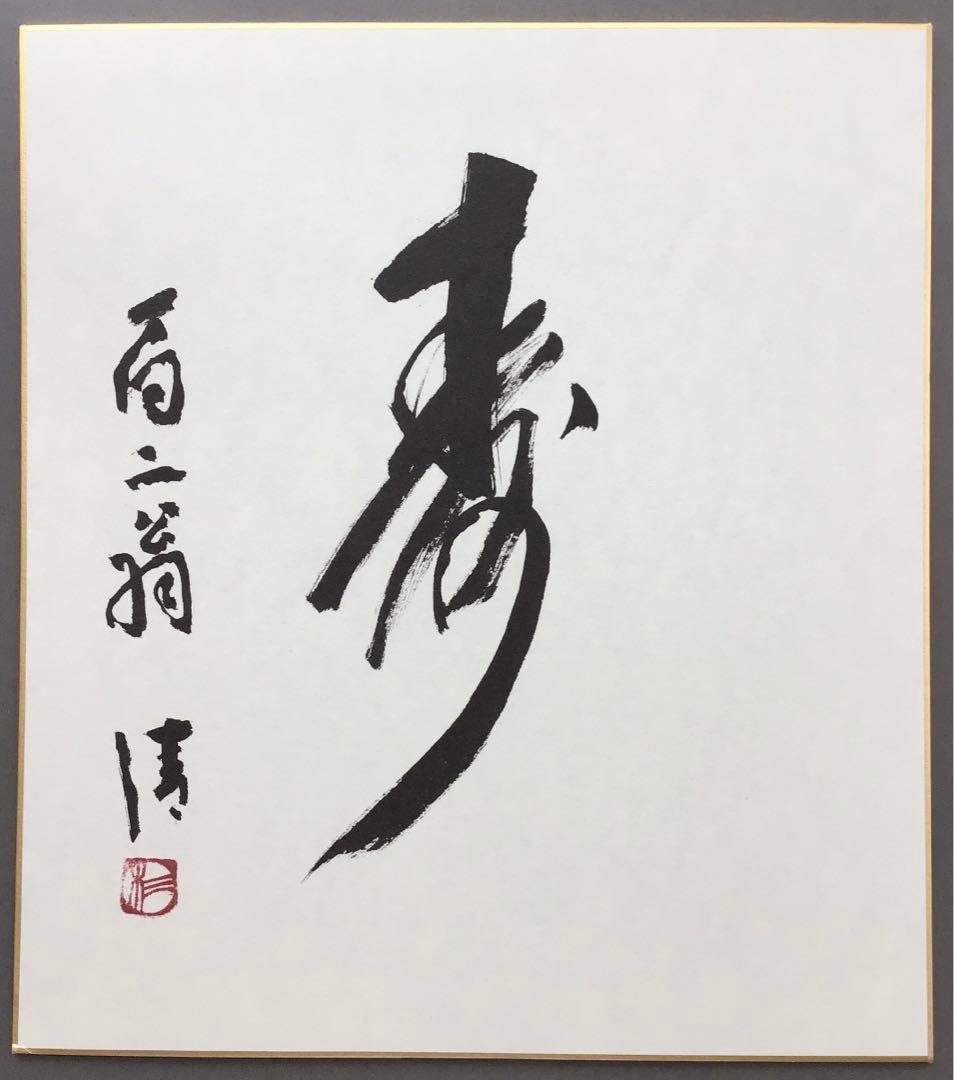 寿
百二翁 清